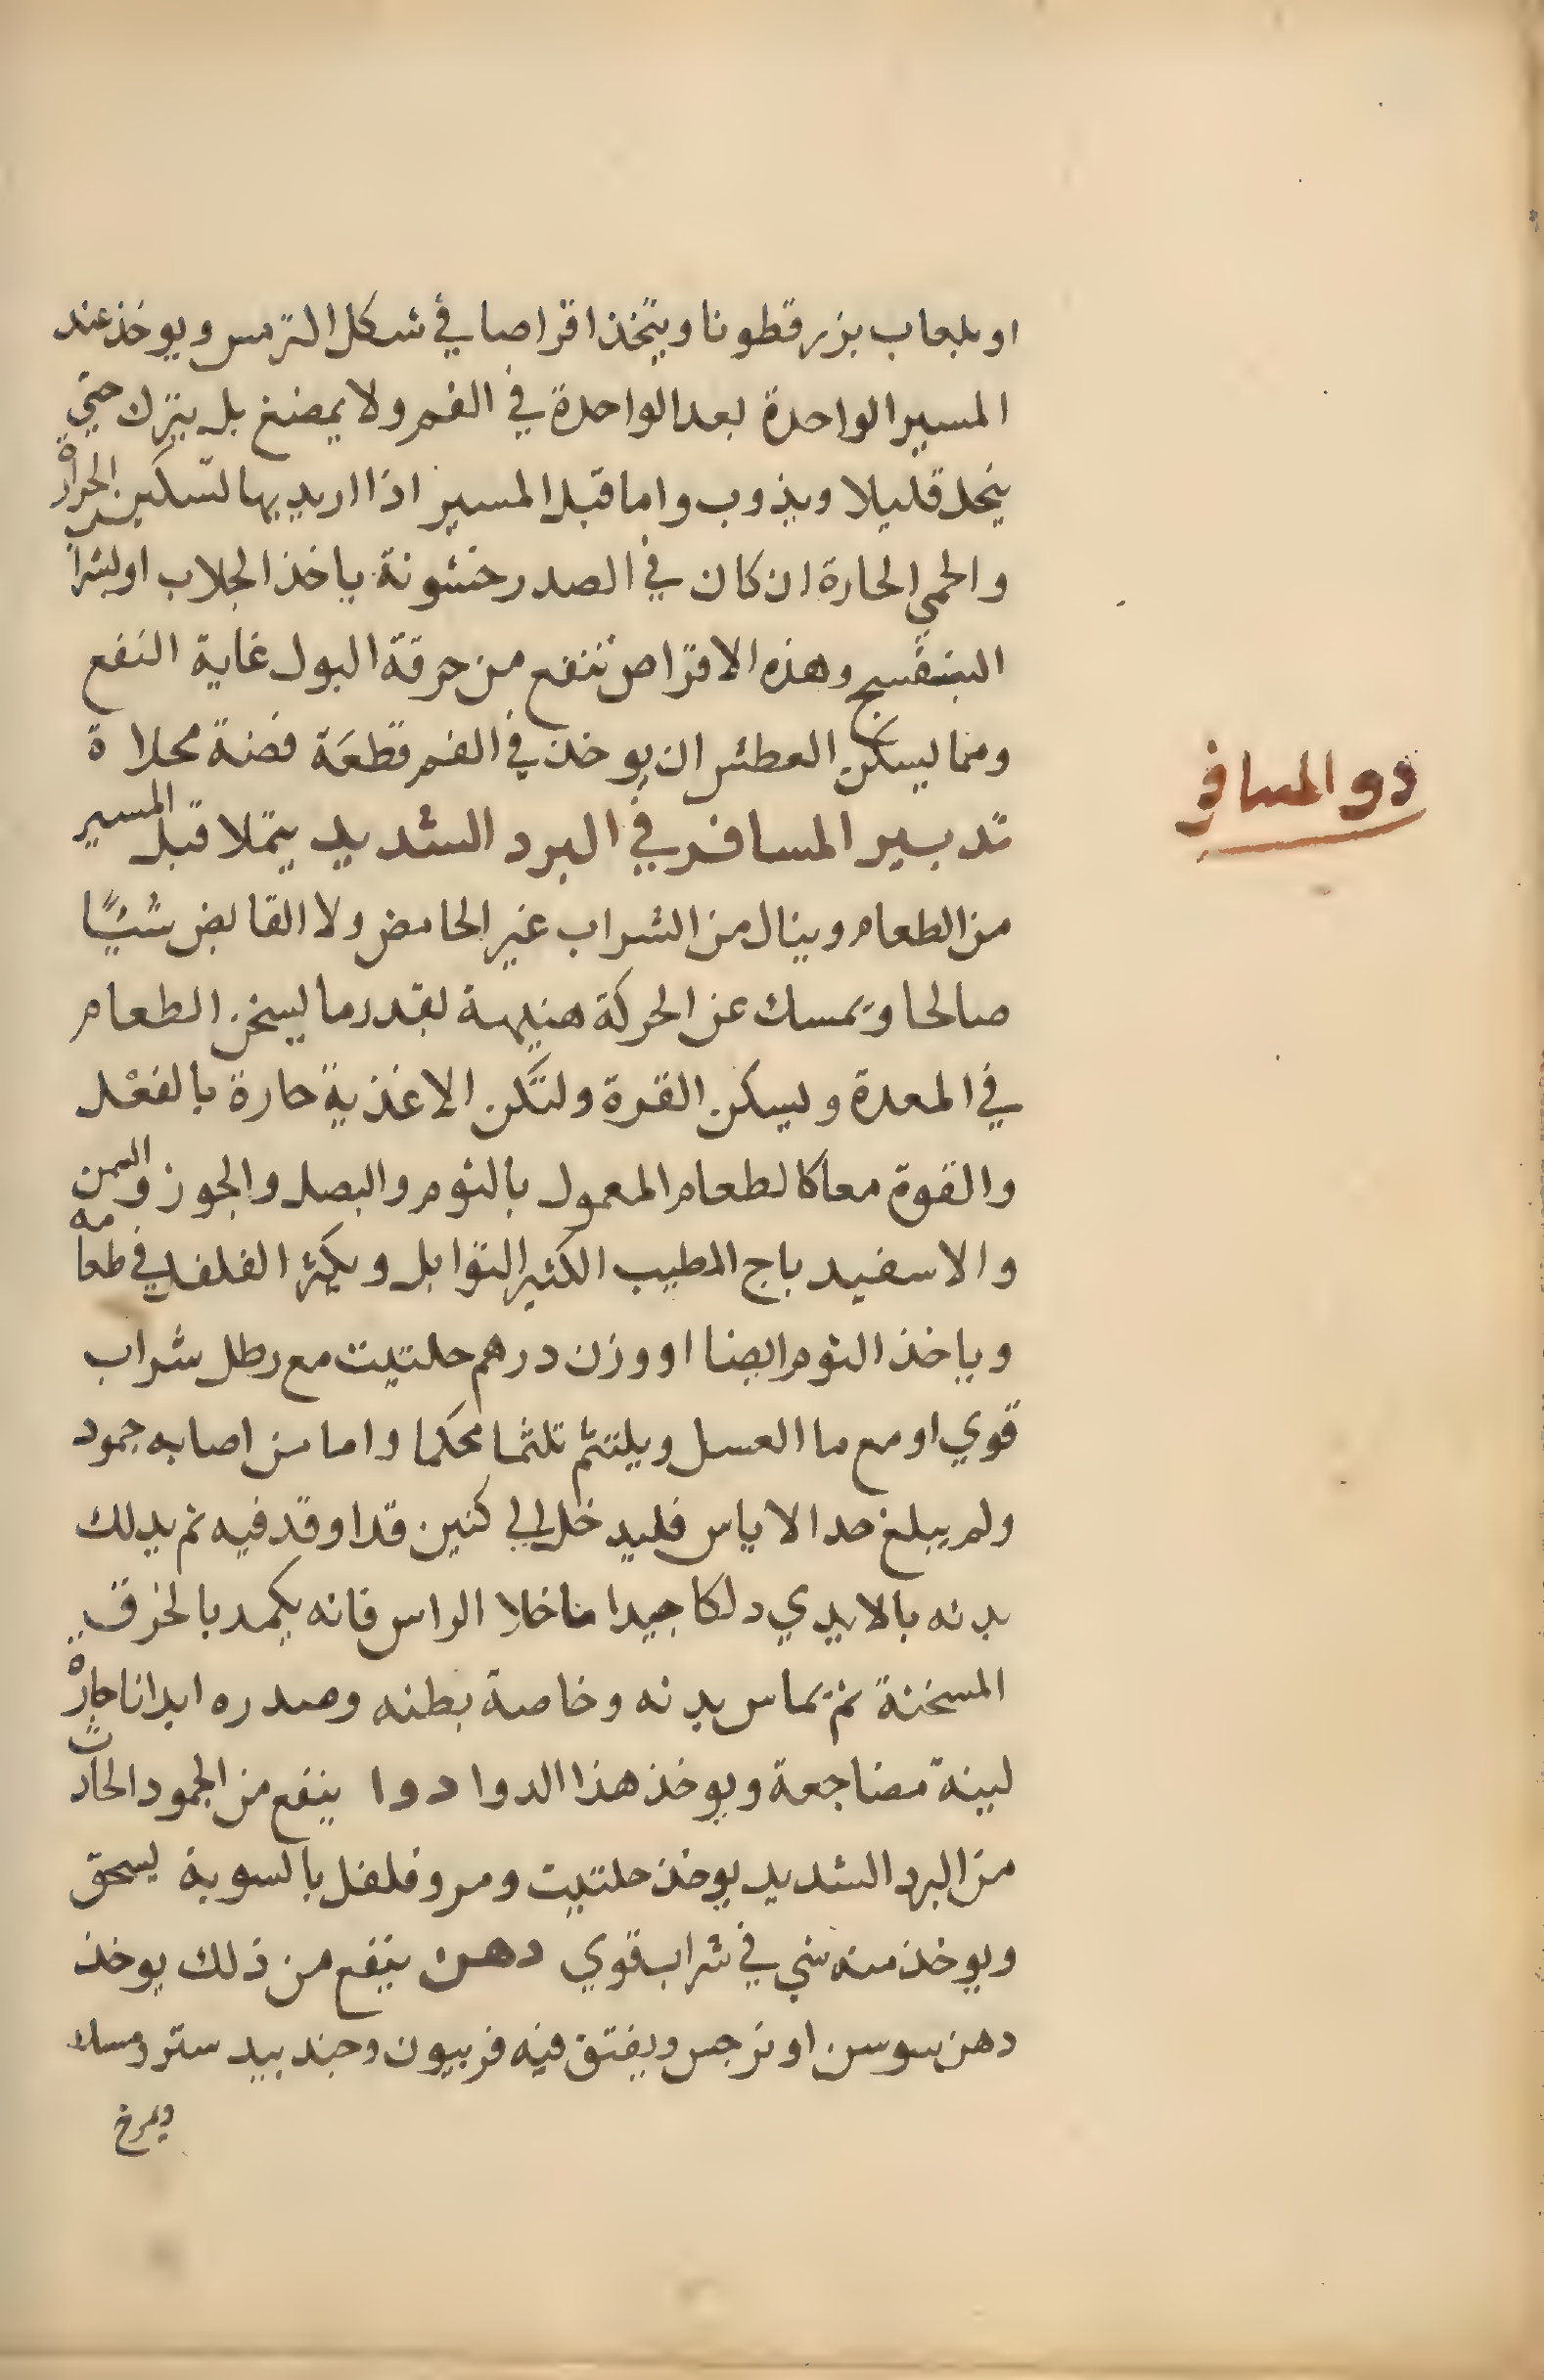 او بلعاب بزر قطونا ويتخذ اقراصا في شكل الترمس ويوخذ عند
المسير الواحدة بعد الواحدة في الفم ولا يمضغ بل يترك حتي
ينحل قليلا ويذوب واما قبل المسير اذا اريد بها تسكين الحرارة
والحمي الحارة ان كان في الصدر خشونة ياخذ الجلاب او بشراب
البنفسج وهذه الاقراص تنفع من حرقة البول غاية النفع
ومما يسكن العطش ان يوخذ في الفم قطعة فضة محلاة
دو المسافر
تدبير المسافر في البرد الشديد يتملا قبل المسير
من الطعام وينال من الشراب غير الحامض ولا القابض شيًا
صالحا ويمسك عن الحركة هنيهة بقدر ما يسخن الطعام
في المعدة ويسكن القرة ولتكن الاغذية حارة بالفعل
والقوة معا كالطعام المعمول بالثوم والبصل والجوز والسمن
والاسفيد باج المطيب الكثير التوابل ويكثر الفلفل في طعامه
وياخذ الثوم ايضا او وزن درهم حلتيت مع رطل شراب
قوي او مع ما العسل ويلتثم تلثما محكما واما من اصابه جمود
ولم يبلغ حد الاياس فليدخل الي كنين قد اوقد فيه ثم يدلك
بدنه بالايدي دلكا جيدا ما خلا الراس فانه يكمد بالخرق
المسخنة ثم تماس بدنه وخاصة بطنه وصدره ابدانا حارة
لينة مضاجعة ويوخذ هذا الدوا دوا ينفع من الجمود الحادث
من البرد الشديد يوخذ حلتيت ومر وفلفل بالسوية يسحق
ويوخذ منه شي في شراب قوي دهن ينفع من ذلك يوخذ
دهن سوسن او نرجس ويفتق فيه فربيون وجند بيد ستر ومسك
ويمرخ